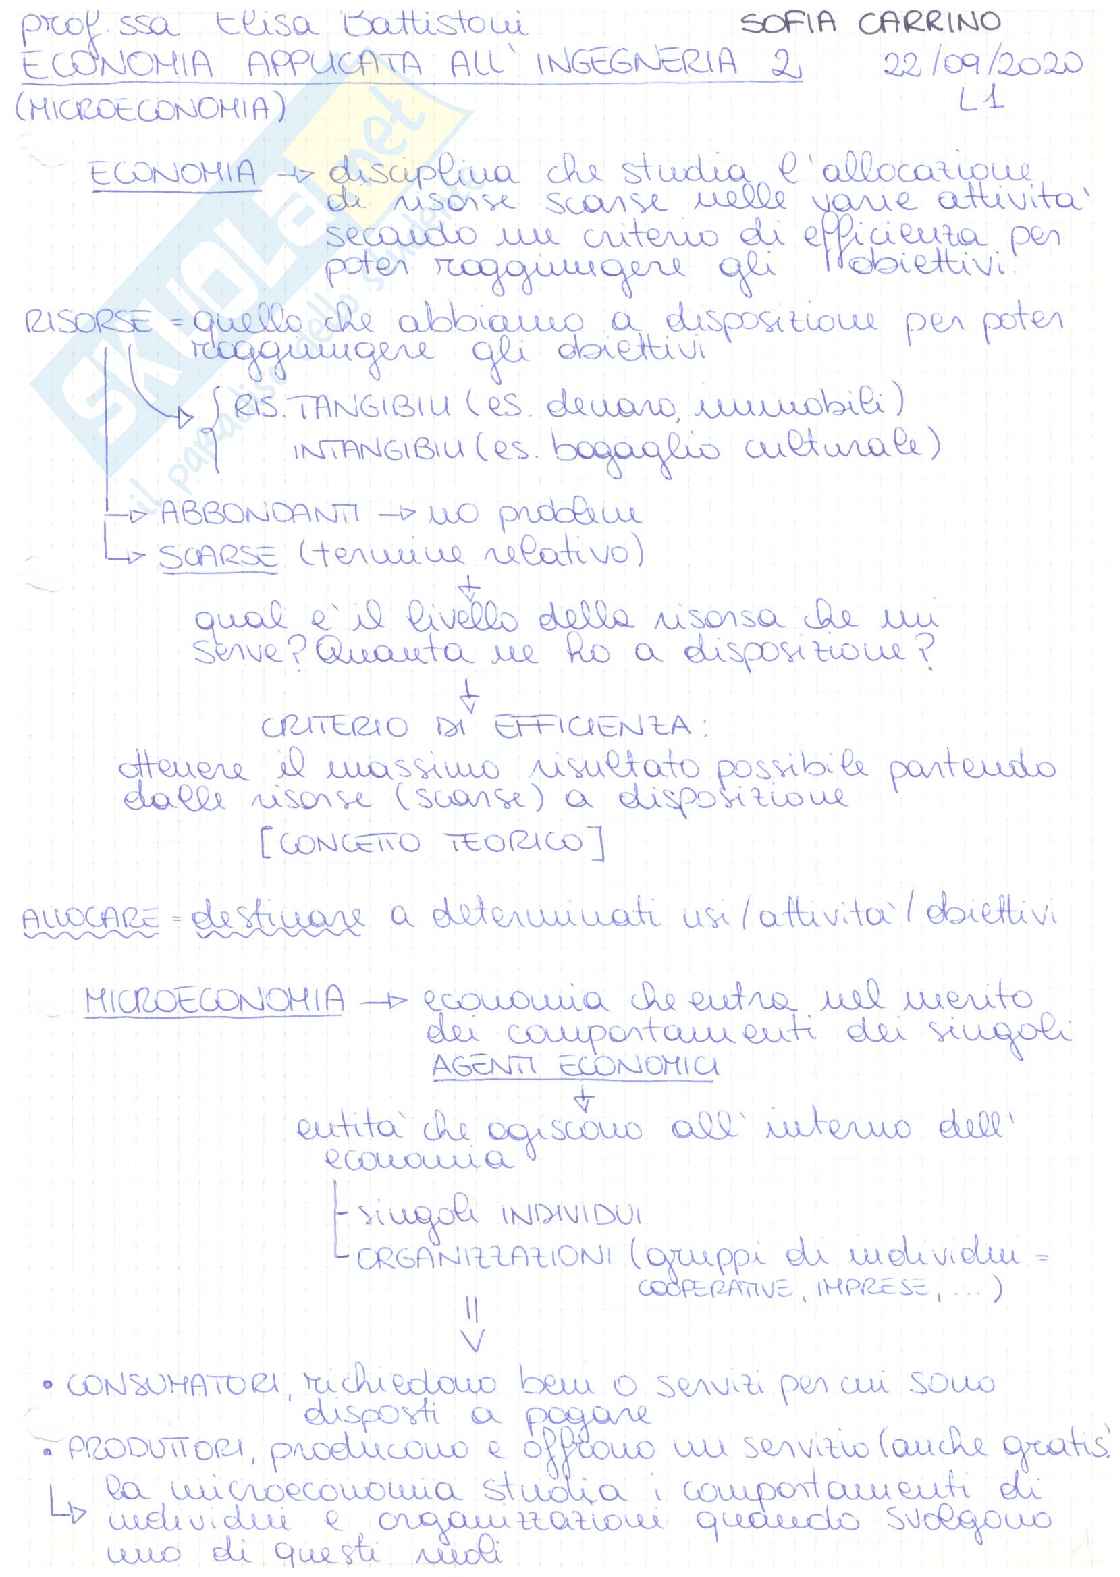 prof.ssa Elisa Battistoni SOFIA CARRINO
ECONOMIA APPLICATA ALL'INGEGNERIA 2 22/09/2020
(MICROECONOMIA) L1
ECONOMIA → disciplina che studia l'allocazione
di risorse scarse nelle varie attività
secondo un criterio di efficienza per
poter raggiungere gli obiettivi.
RISORSE = quello che abbiamo a disposizione per poter
raggiungere gli obiettivi
RIS. TANGIBILI (es. denaro, immobili)
INTANGIBILI (es. bagaglio culturale)
→ ABBONDANTI → no problem
→ SCARSE (termine relativo)
qual è il livello della risorsa che mi
serve? Quanta ne ho a disposizione?
CRITERIO DI EFFICIENZA:
ottenere il massimo risultato possibile partendo
dalle risorse (scarse) a disposizione
[CONCETTO TEORICO]
ALLOCARE = destinare a determinati usi/attività/obiettivi
MICROECONOMIA → economia che entra nel merito
dei comportamenti dei singoli
AGENTI ECONOMICI
entità che agiscono all'interno dell'
economia
- singoli INDIVIDUI
- ORGANIZZAZIONI (gruppi di individui =
COOPERATIVE, IMPRESE, ...)
• CONSUMATORI, richiedono beni o servizi per cui sono
disposti a pagare
• PRODUTTORI, producono e offrono un servizio (anche gratis)
la microeconomia studia i comportamenti di
individui e organizzazioni quando svolgono
uno di questi ruoli
SKUOLA.net
il paradiso dello studente